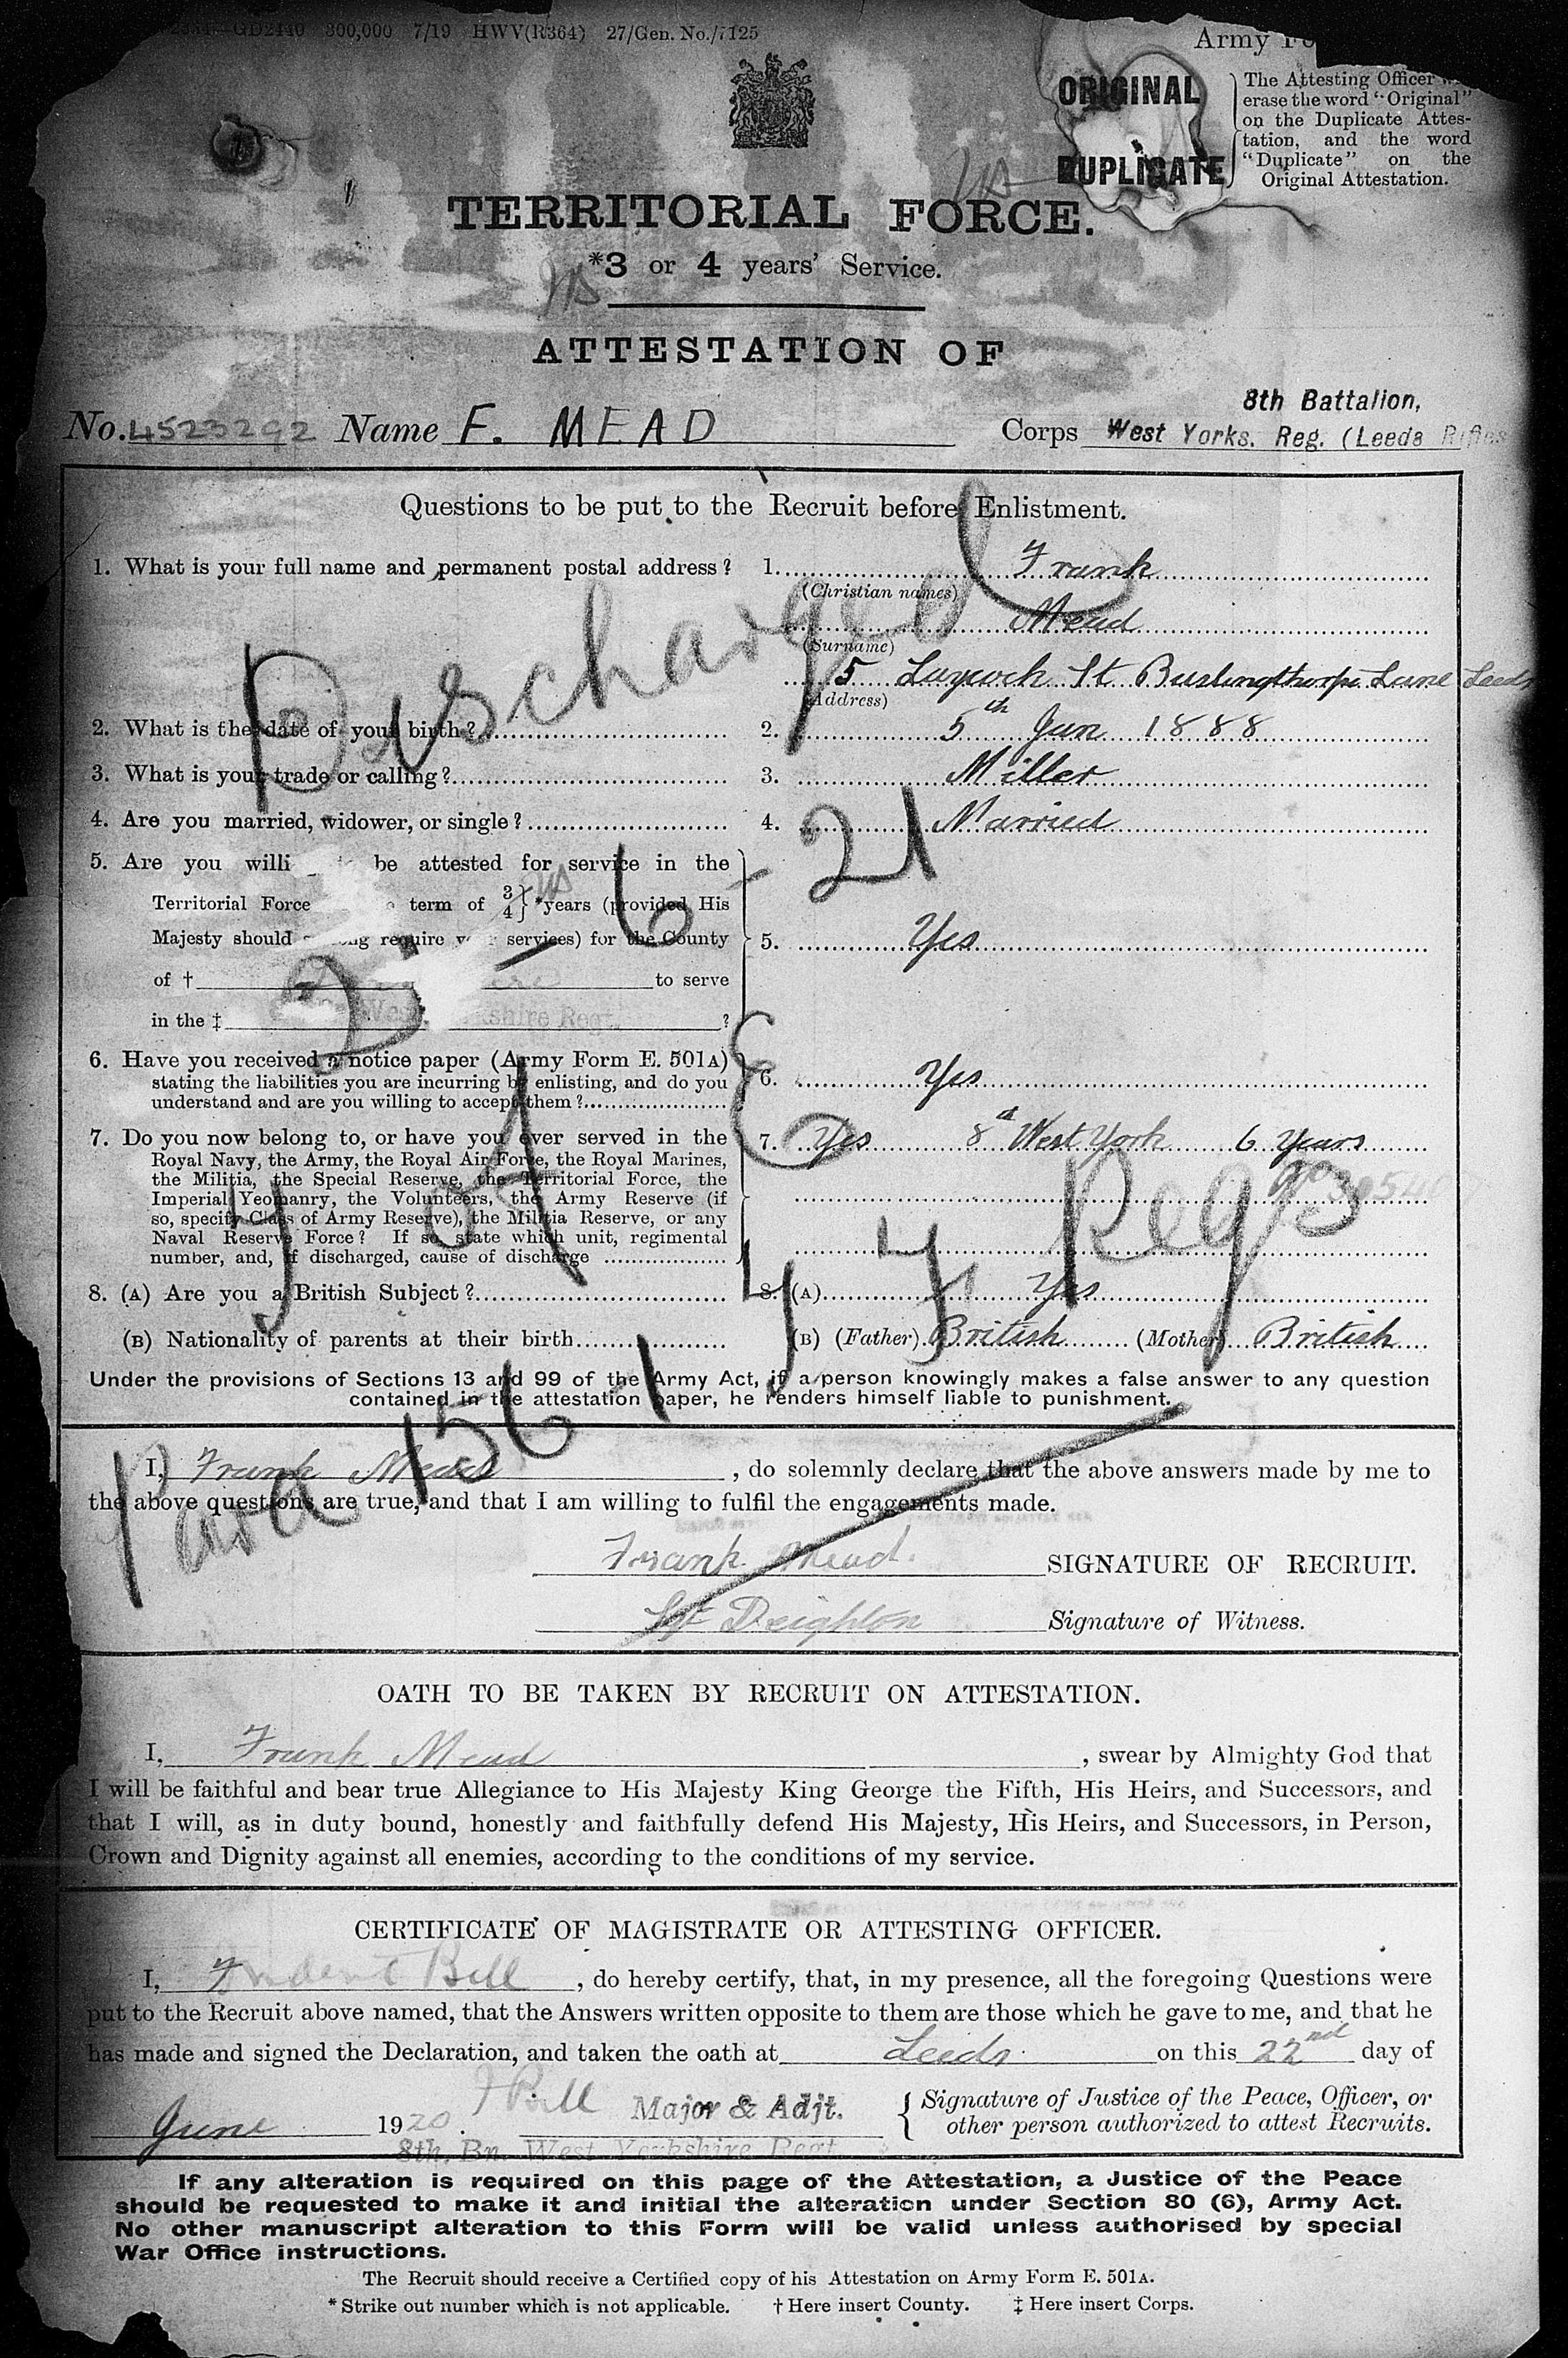 GD2440 300,000 7/19 HWV(R364) 27/Gen. No./7125
Army
ORIGINAL
DUPLICATE
The Attesting Officer
erase the word "Original"
on the Duplicate Attes-
tation, and the word
"Duplicate" on the
Original Attestation.
TERRITORIAL FORCE.
*3 or 4 years' Service.
ATTESTATION OF
8th Battalion,
No. 4523292 Name F. MEAD Corps West Yorks. Reg. (Leeds Rifles
Questions to be put to the Recruit before Enlistment.
1. What is your full name and permanent postal address? 1. Frank
(Christian names)
Mead
(Surname)
5 Laycock St Buslingthorpe Lane Leeds
(Address)
2. What is the date of your birth? 2. 5th Jan 1888
3. What is your trade or calling? 3. Miller
4. Are you married, widower, or single? 4. Married
5. Are you willi be attested for service in the
Territorial Force term of 3/4} *years (provided His
Majesty should require services) for the County
5. Yes
of † to serve
in the ‡ West kshire Regt. ?
6. Have you received a notice paper (Army Form E. 501A)
stating the liabilities you are incurring by enlisting, and do you
understand and are you willing to accept them?
6. Yes
7. Do you now belong to, or have you ever served in the
Royal Navy, the Army, the Royal Air Force, the Royal Marines,
the Militia, the Special Reserve, the Territorial Force, the
Imperial Yeomanry, the Volunteers, the Army Reserve (if
so, specify Class of Army Reserve), the Militia Reserve, or any
Naval Reserve Force? If so, state which unit, regimental
number, and, if discharged, cause of discharge
7. Yes 8th West York 6 Years
8. (A) Are you a British Subject? 8. (A) Yes
(B) Nationality of parents at their birth (B) (Father) British (Mother) British
Discharged
2 - 6 - 21
Para 156 -1 4 of
T.F. Regs
Under the provisions of Sections 13 and 99 of the Army Act, if a person knowingly makes a false answer to any question
contained in the attestation paper, he renders himself liable to punishment.
I, Frank Mead, do solemnly declare that the above answers made by me to
the above questions are true, and that I am willing to fulfil the engagements made.
Frank Mead. SIGNATURE OF RECRUIT.
Deighton Signature of Witness.
OATH TO BE TAKEN BY RECRUIT ON ATTESTATION.
I, Frank Mead, swear by Almighty God that
I will be faithful and bear true Allegiance to His Majesty King George the Fifth, His Heirs, and Successors, and
that I will, as in duty bound, honestly and faithfully defend His Majesty, His Heirs, and Successors, in Person,
Crown and Dignity against all enemies, according to the conditions of my service.
CERTIFICATE OF MAGISTRATE OR ATTESTING OFFICER.
I, Bell, do hereby certify, that, in my presence, all the foregoing Questions were
put to the Recruit above named, that the Answers written opposite to them are those which he gave to me, and that he
has made and signed the Declaration, and taken the oath at Leeds on this 22nd day of
June 1920. F Bell Major & Adjt.
8th. Bn. West Yorkshire Regt
{ Signature of Justice of the Peace, Officer, or
other person authorized to attest Recruits.
If any alteration is required on this page of the Attestation, a Justice of the Peace
should be requested to make it and initial the alteration under Section 80 (6), Army Act.
No other manuscript alteration to this Form will be valid unless authorised by special
War Office instructions.
The Recruit should receive a Certified copy of his Attestation on Army Form E. 501A.
* Strike out number which is not applicable. † Here insert County. ‡ Here insert Corps.